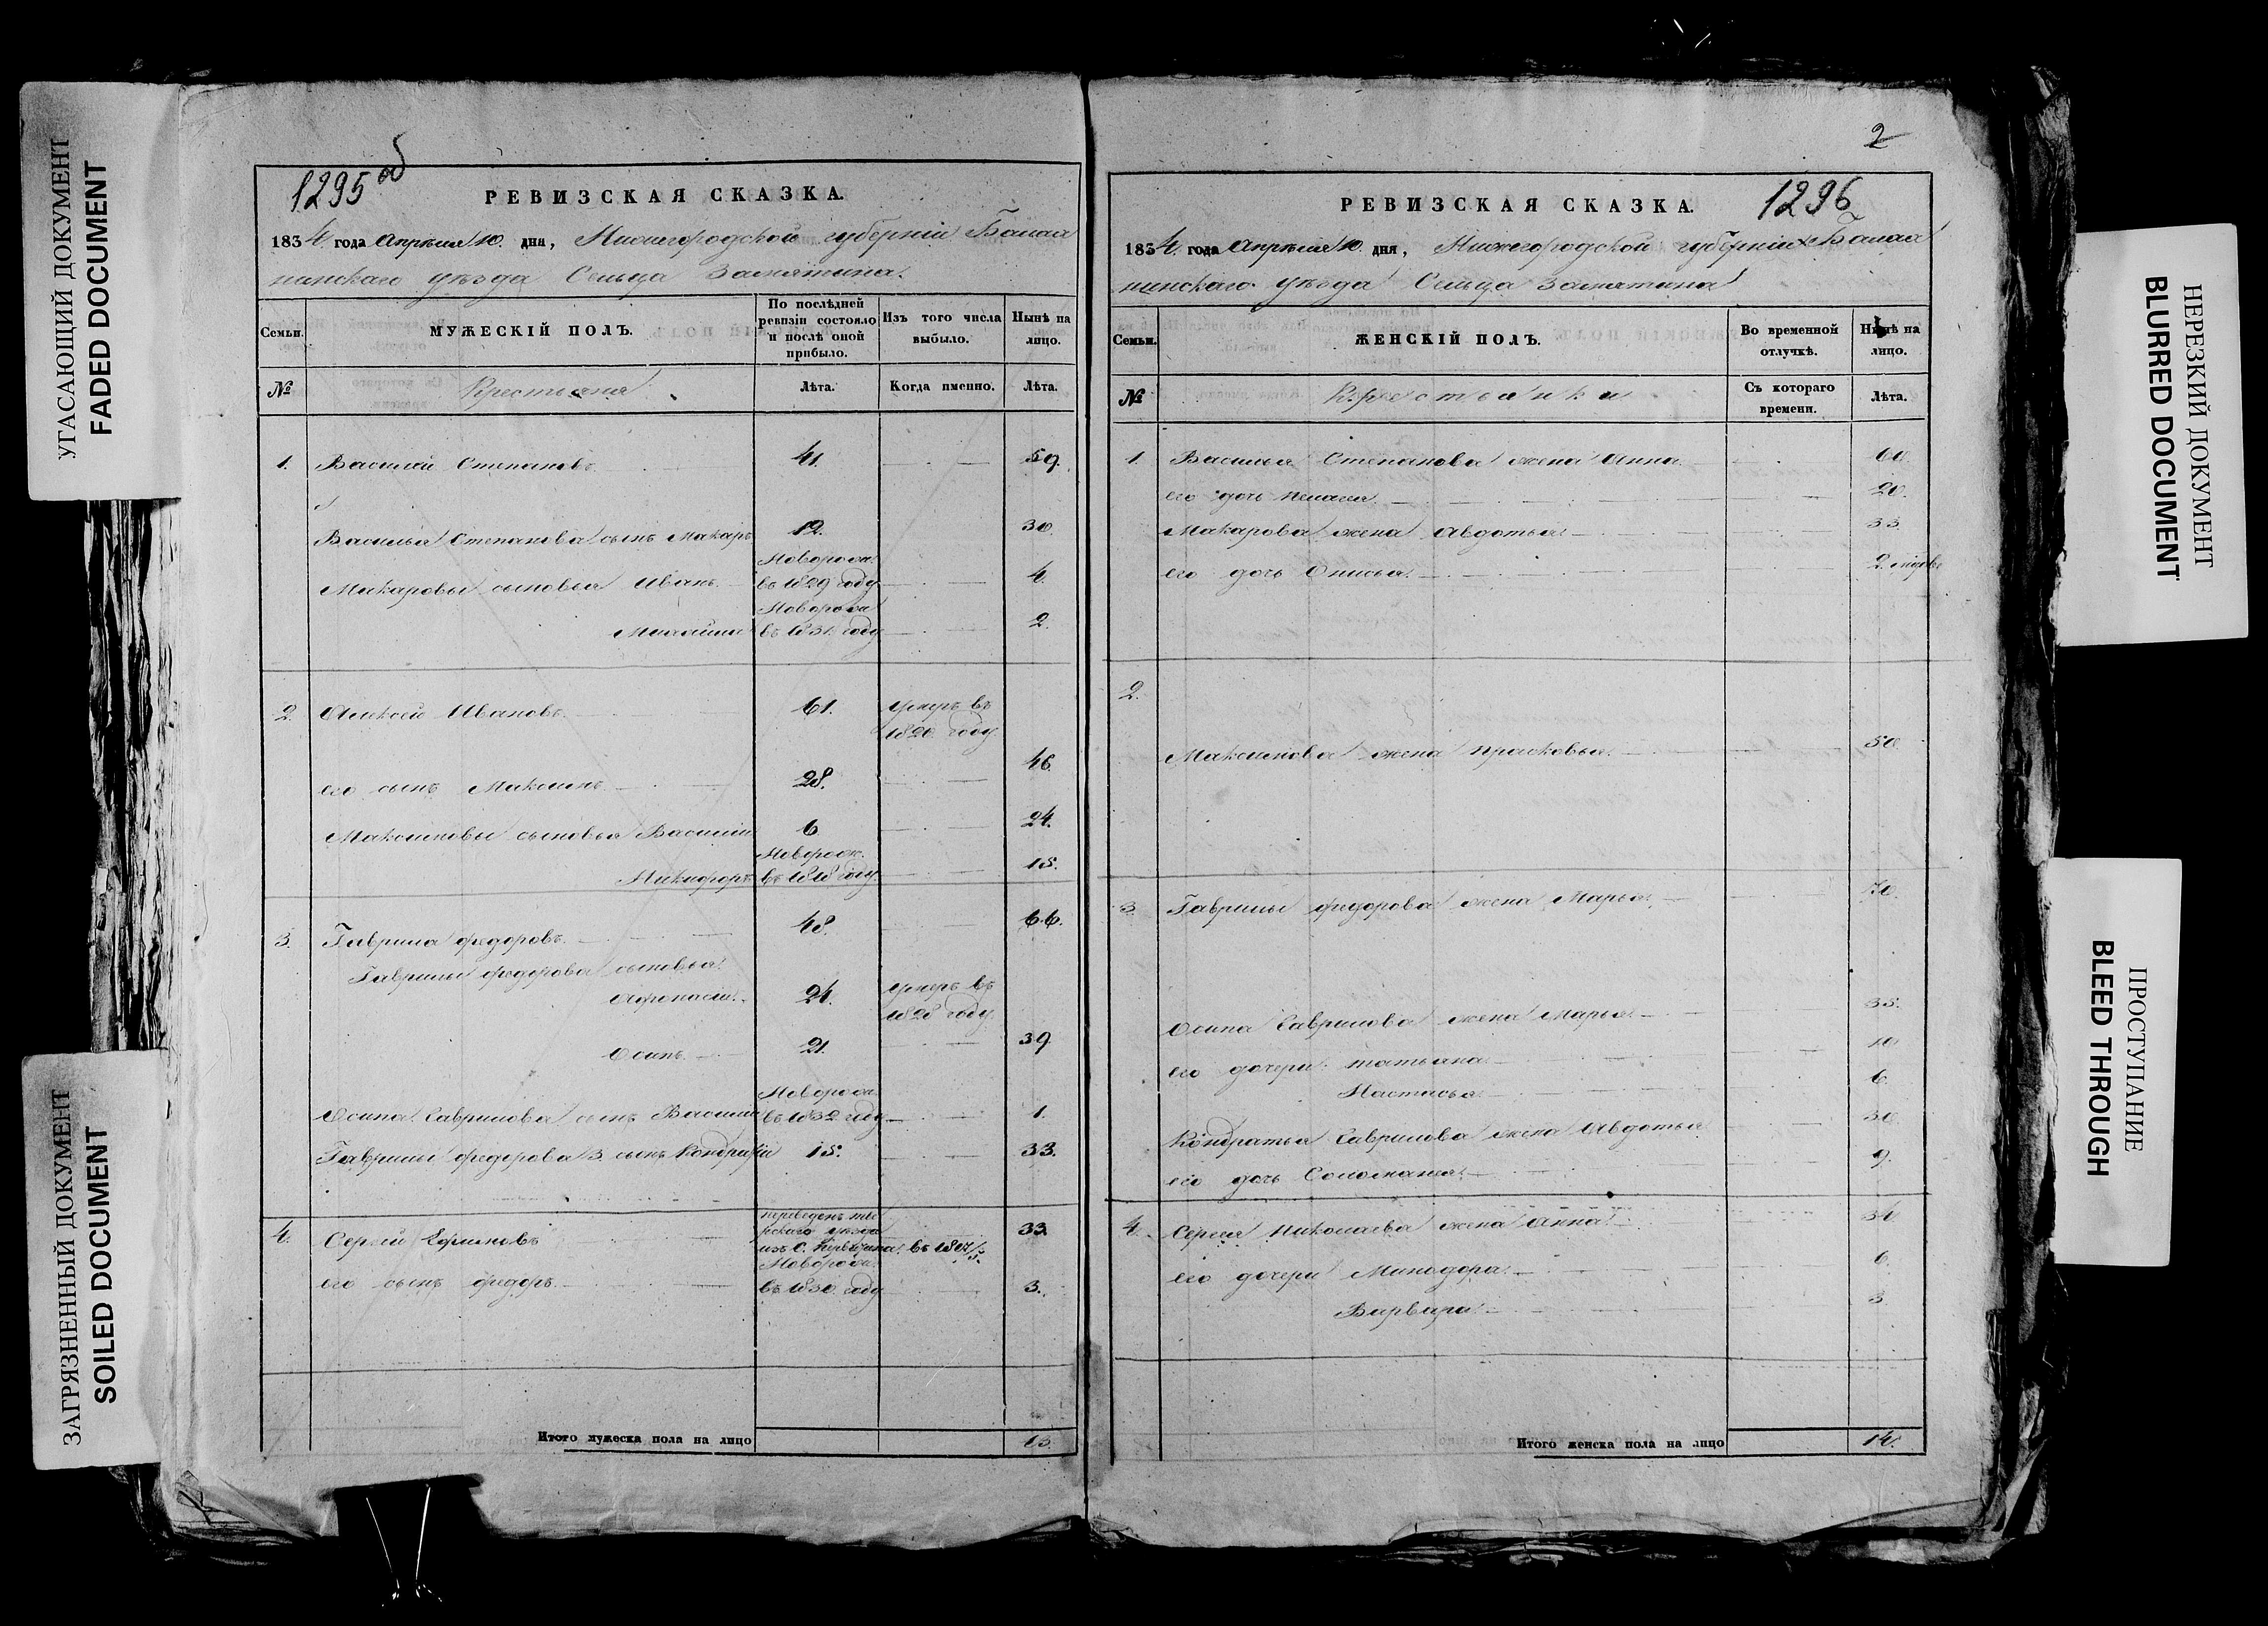 УГАСАЮЩИЙ ДОКУМЕНТ
FADED DOCUMENT
ЗАГРЯЗНЕННЫЙ ДОКУМЕНТ
SOILED DOCUMENT
1295 об
РЕВИЗСКАЯ СКАЗКА.
1834 года Апреля 10. дня, Нижегородской губерніи Балах
нинскаго уѣзда Сельца Замятина.
Семьи. МУЖЕСКІЙ ПОЛЪ. По послѣдней ревизіи состояло и послѣ оной прибыло. Изъ того числа выбыло. Нынѣ на лицо.
№ Крестьяна Лѣта. Когда именно. Лѣта.
1. Василій Степановъ 41. 59.
Василья Степанова сынъ Макаръ 12. 30.
Новорож.
Макаровы сыновья Иванъ въ 1829 году 4.
Новорож.
Михайла въ 1831 году 2.
2. Алексей Ивановъ 61. умеръ въ
1820 году
его сынъ Максимъ 28. 46.
Максимовы сыновья Василій 6 24.
Новорож.
Никифоръ въ 1818 году 15.
3. Гаврила федоровъ 48. 66.
Гаврилы федорова сыновья
Афонасій 24. умеръ въ
1828 году
Осипъ 21. 39
Новорож.
Осипа Гаврилова сынъ Василій въ 1832 году 1.
Гаврилы федорова 3 сынъ Кондратій 15. 33.
4. Сергей 33.
Новорож.
его сынъ федоръ въ 1830 году 3.
Итого мужеска пола на лицо 13.
2
РЕВИЗСКАЯ СКАЗКА. 1296
1834 года Апреля 10. дня, Нижегородской губерніи Балах
нинскаго уѣзда Сельца Замятина
Семьи. ЖЕНСКІЙ ПОЛЪ. Во временной отлучкѣ. Нынѣ на лицо.
№ Крестьянки Съ котораго времени. Лѣта.
1. Василья Степанова жена Анна 60.
его дочь Пелагея 20.
Макарова жена Авдотья 33.
его дочь 2
2.
Максимова жена Прасковья 50.
3. Гаврилы федорова жена Марья 70.
Осипа Гаврилова жена Марья 35.
его дочери Татьяна 10
Настасья 6.
Кондратья Гаврилова жена Авдотья 30.
его дочь Соломанея 9.
4. Сергея Николаева жена Анна 34.
его дочери Минодора 6.
Варвара 3
Итого женска пола на лицо 14.
НЕРЕЗКИЙ ДОКУМЕНТ
BLURRED DOCUMENT
ПРОСТУПАНИЕ
BLEED THROUGH